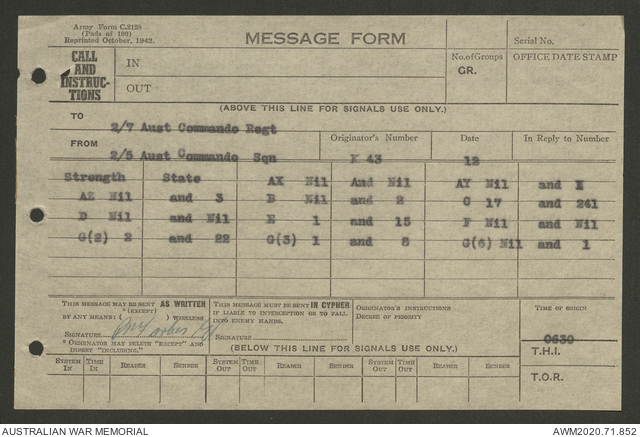 Army Form C.2128
(Pads of 100)
Reprinted October, 1942.
MESSAGE FORM
Serial No.
CALL AND INSTRUC-TIONS
IN
OUT
No. of Groups
GR.
OFFICE DATE STAMP
(ABOVE THIS LINE FOR SIGNALS USE ONLY.)
TO
2/7 Aust Commando Regt
FROM
Originator's Number
Date
In Reply to Number
2/5 Aust Commando Sqn
K 43
12
Strength State AX Nil And Nil AY Nil and
AZ Nil and 3 B Nil and 2 C 17 and 241
D Nil and Nil E 1 and 15 F Nil and Nil
G(2) 2 and 22 G(3) 1 and 8 G(6) Nil and 1
THIS MESSAGE MAY BE SENT AS WRITTEN
*(EXCEPT)
BY ANY MEANS: ( ) WIRELESS
SIGNATURE
* ORIGINATOR MAY DELETE "EXCEPT" AND
INSERT "INCLUDING."
THIS MESSAGE MUST BE SENT IN CYPHER
IF LIABLE TO INTERCEPTION OR TO FALL
INTO ENEMY HANDS.
SIGNATURE
ORIGINATOR'S INSTRUCTIONS
DEGREE OF PRIORITY
TIME OF ORIGIN
0630
T.H.I.
T.O.R.
(BELOW THIS LINE FOR SIGNALS USE ONLY.)
SYSTEM IN TIME IN READER SENDER SYSTEM OUT TIME OUT READER SENDER SYSTEM OUT TIME OUT READER SENDER
AUSTRALIAN WAR MEMORIAL
AWM2020.71.852